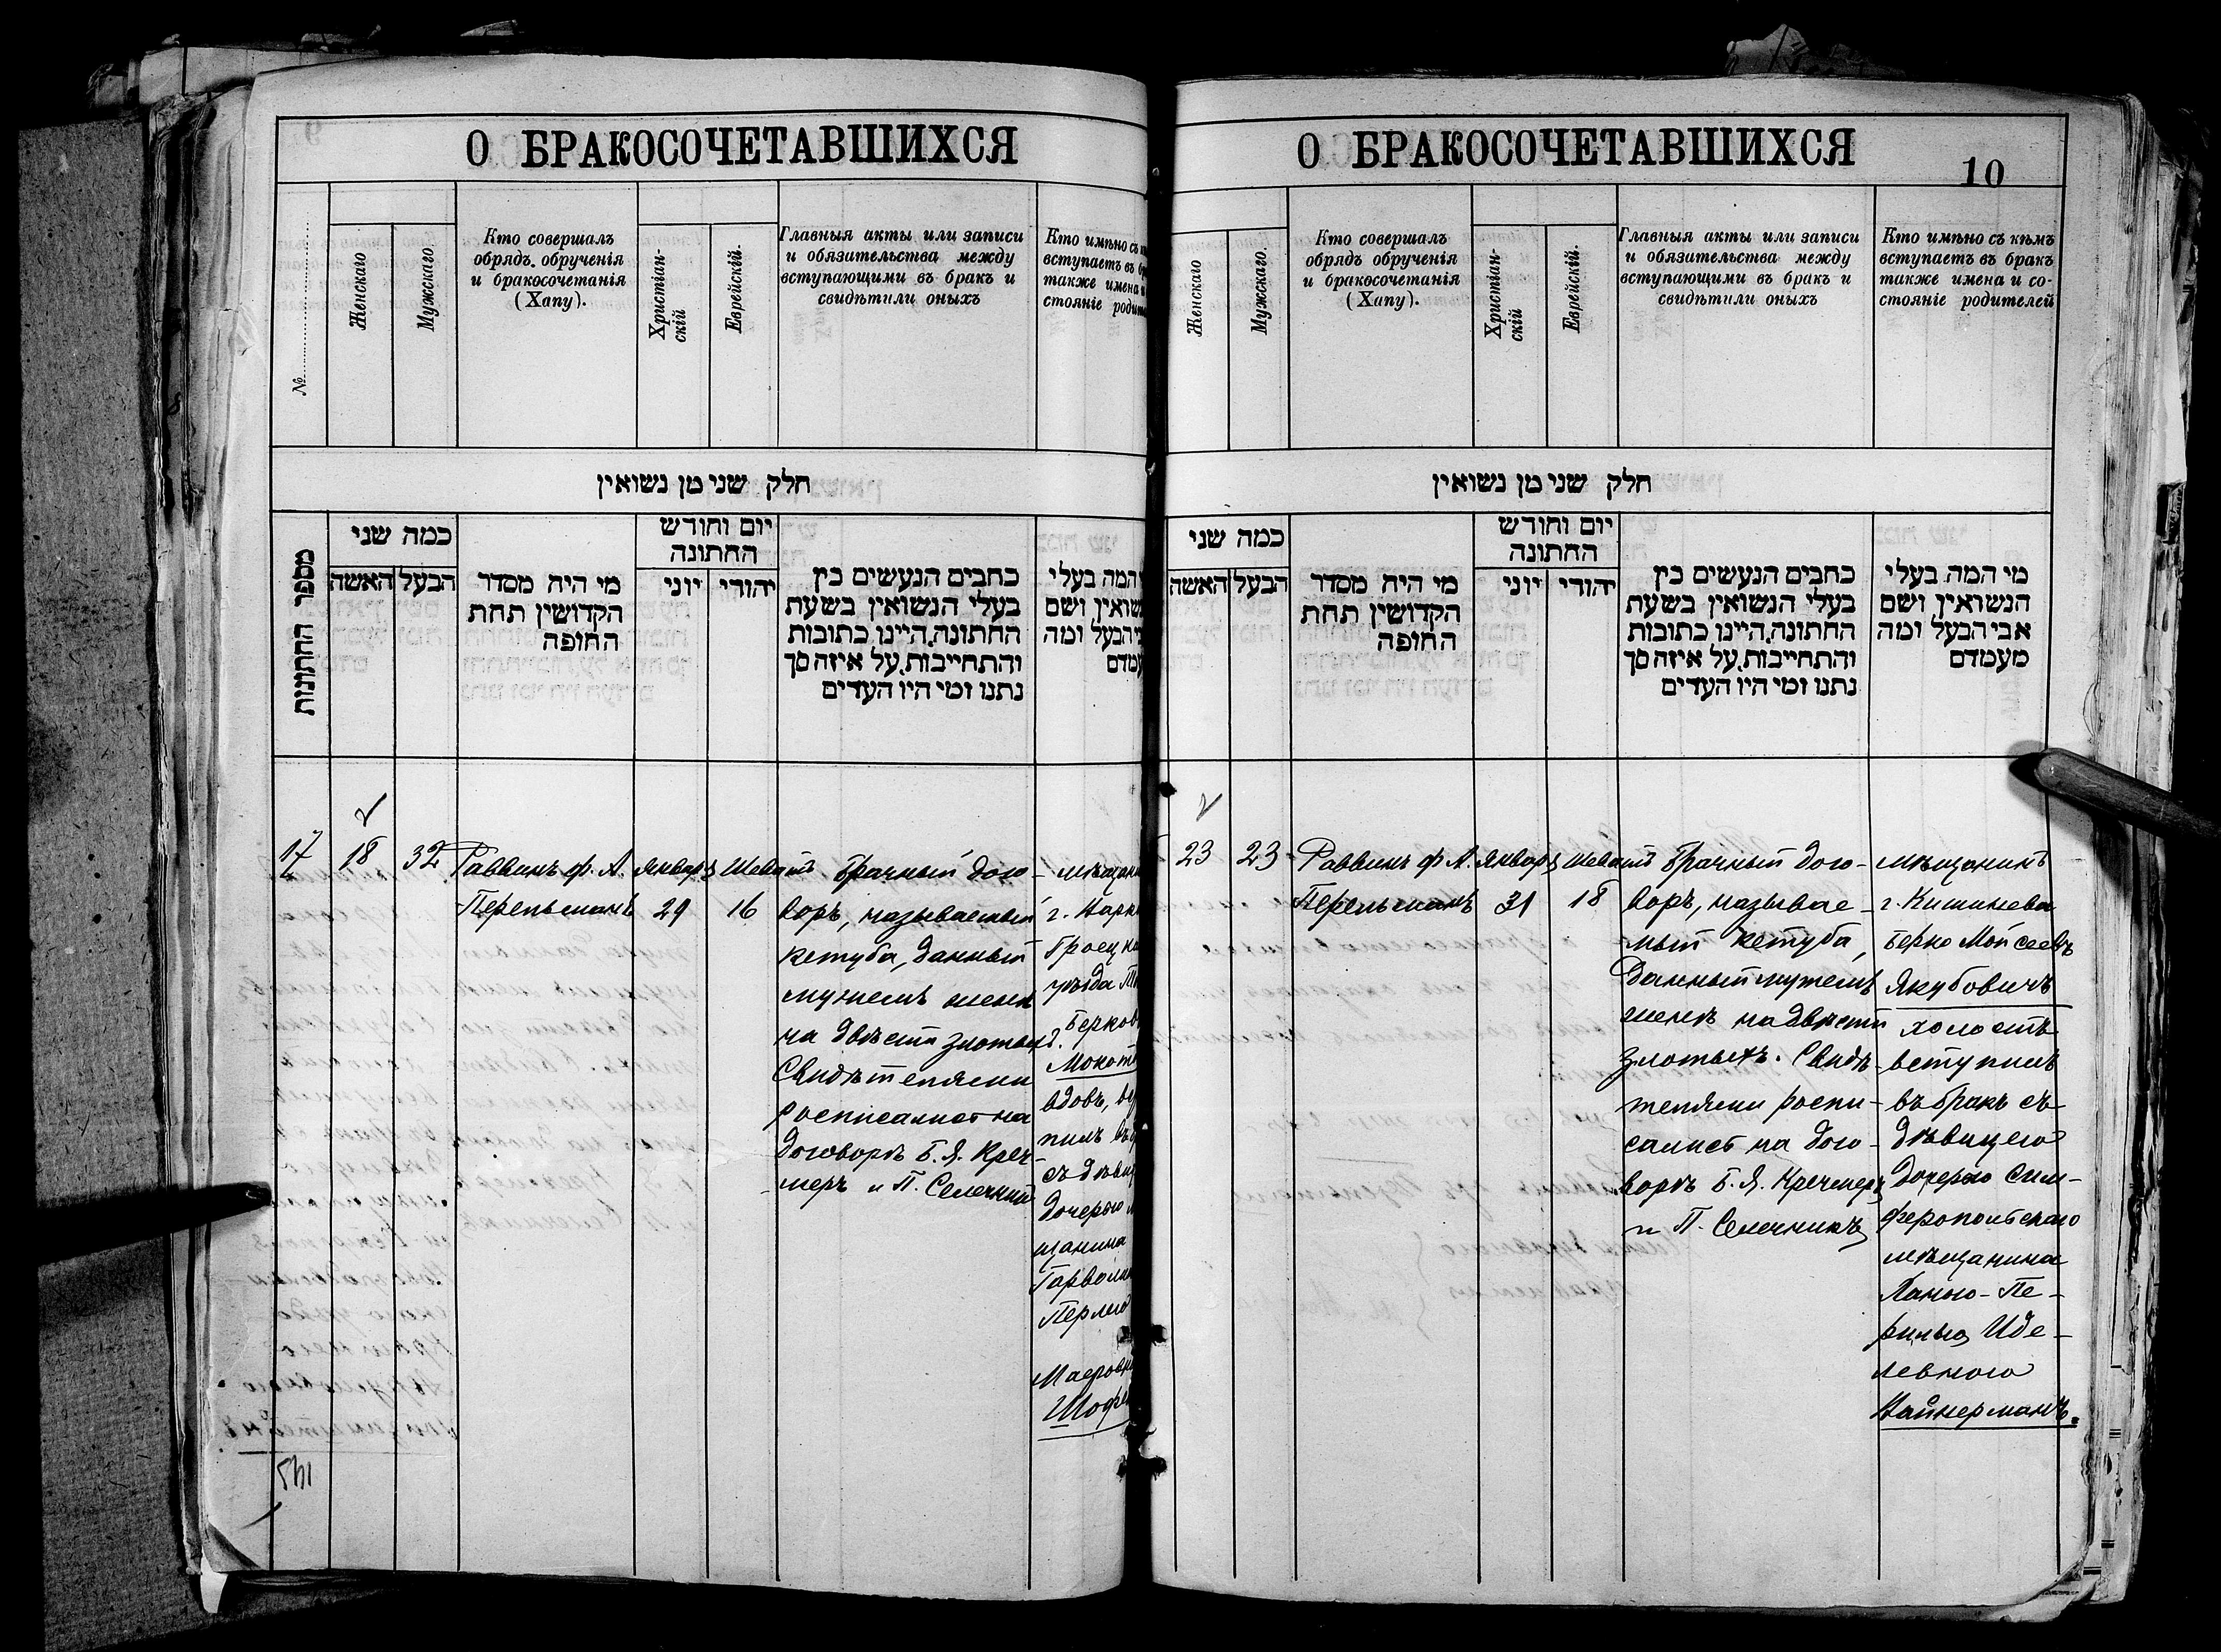 О БРАКОСОЧЕТАВШИХСЯ
№
Женскаго
Мужскаго
Кто совершалъ
обрядъ обрученія
и бракосочетанія
(Хапу).
Христіан-
скій
Еврейскій.
Главныя акты или записи
и обязательства между
вступающими въ бракъ и
свидѣтили оныхъ
Кто имѣно съ
вступаетъ въ
также имена и
стояніе
חלק שני מן נשואין
מספר החתונות
כמה שני
האשה
הבעל
מי היה מסדר
הקדושין תחת
החופה
יום וחודש
החתונה
יוני
יהודי
כתבים הנעשים בין
בעלי הנשואין בשעת
החתונה, היינו כתובות
והתחייבות, על איזה סך
נתנו ומי היו העדים
המה בעלי
ושם
הבעל ומה
17
18
32
Раввинъ ф. А.
Перельманъ
Январь
29
Шеватъ
16
Брачный дого-
воръ, называемый
кетуба, данный
мужемъ женѣ
на двѣсти злотыхъ.
Свидѣтелями
росписались на
договорѣ Б. Я. Креч-
меръ и П. Селечникъ
г.
уѣзда
вдовъ,
пилъ
съ
дочерью
щанина
145
О БРАКОСОЧЕТАВШИХСЯ
10
Женскаго
Мужскаго
Кто совершалъ
обрядъ обрученія
и бракосочетанія
(Хапу).
Христіан-
скій
Еврейскій.
Главныя акты или записи
и обязательства между
вступающими въ бракъ и
свидѣтили оныхъ
Кто имѣно съ кѣмъ
вступаетъ въ бракъ
также имена и со-
стояніе родителей
חלק שני מן נשואין
כמה שני
האשה
הבעל
מי היה מסדר
הקדושין תחת
החופה
יום וחודש
החתונה
יוני
יהודי
כתבים הנעשים בין
בעלי הנשואין בשעת
החתונה, היינו כתובות
והתחייבות, על איזה סך
נתנו ומי היו העדים
מי המה בעלי
הנשואין ושם
אבי הבעל ומה
מעמדם
23
23
Раввинъ ф. А.
Перельманъ
Январь
31
Шеватъ
18
Брачный дого-
воръ, называе-
мый кетуба,
данный мужемъ
женѣ на двѣсти
злотыхъ. Свидѣ-
телями роспи-
сались на дого-
ворѣ Б. Я. Кречмеръ
и П. Селечникъ
мѣщанинъ
г. Кишинева
Берко Мойсеевъ
Якубовичъ
холостъ
вступилъ
въ бракъ съ
дѣвицею
дочерью сим-
феропольскаго
мѣщанина
Ханою-Пе-
рилью Иде-
левною
Найнерманъ.